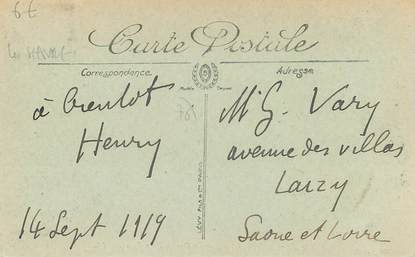 6€
Le HAVRE
Carte Postale
Correspondance
Adresse
à bientôt
Henry
14 Sept 1919
Mr G. Vary
avenue des villas
Larzy
Saone et Loire